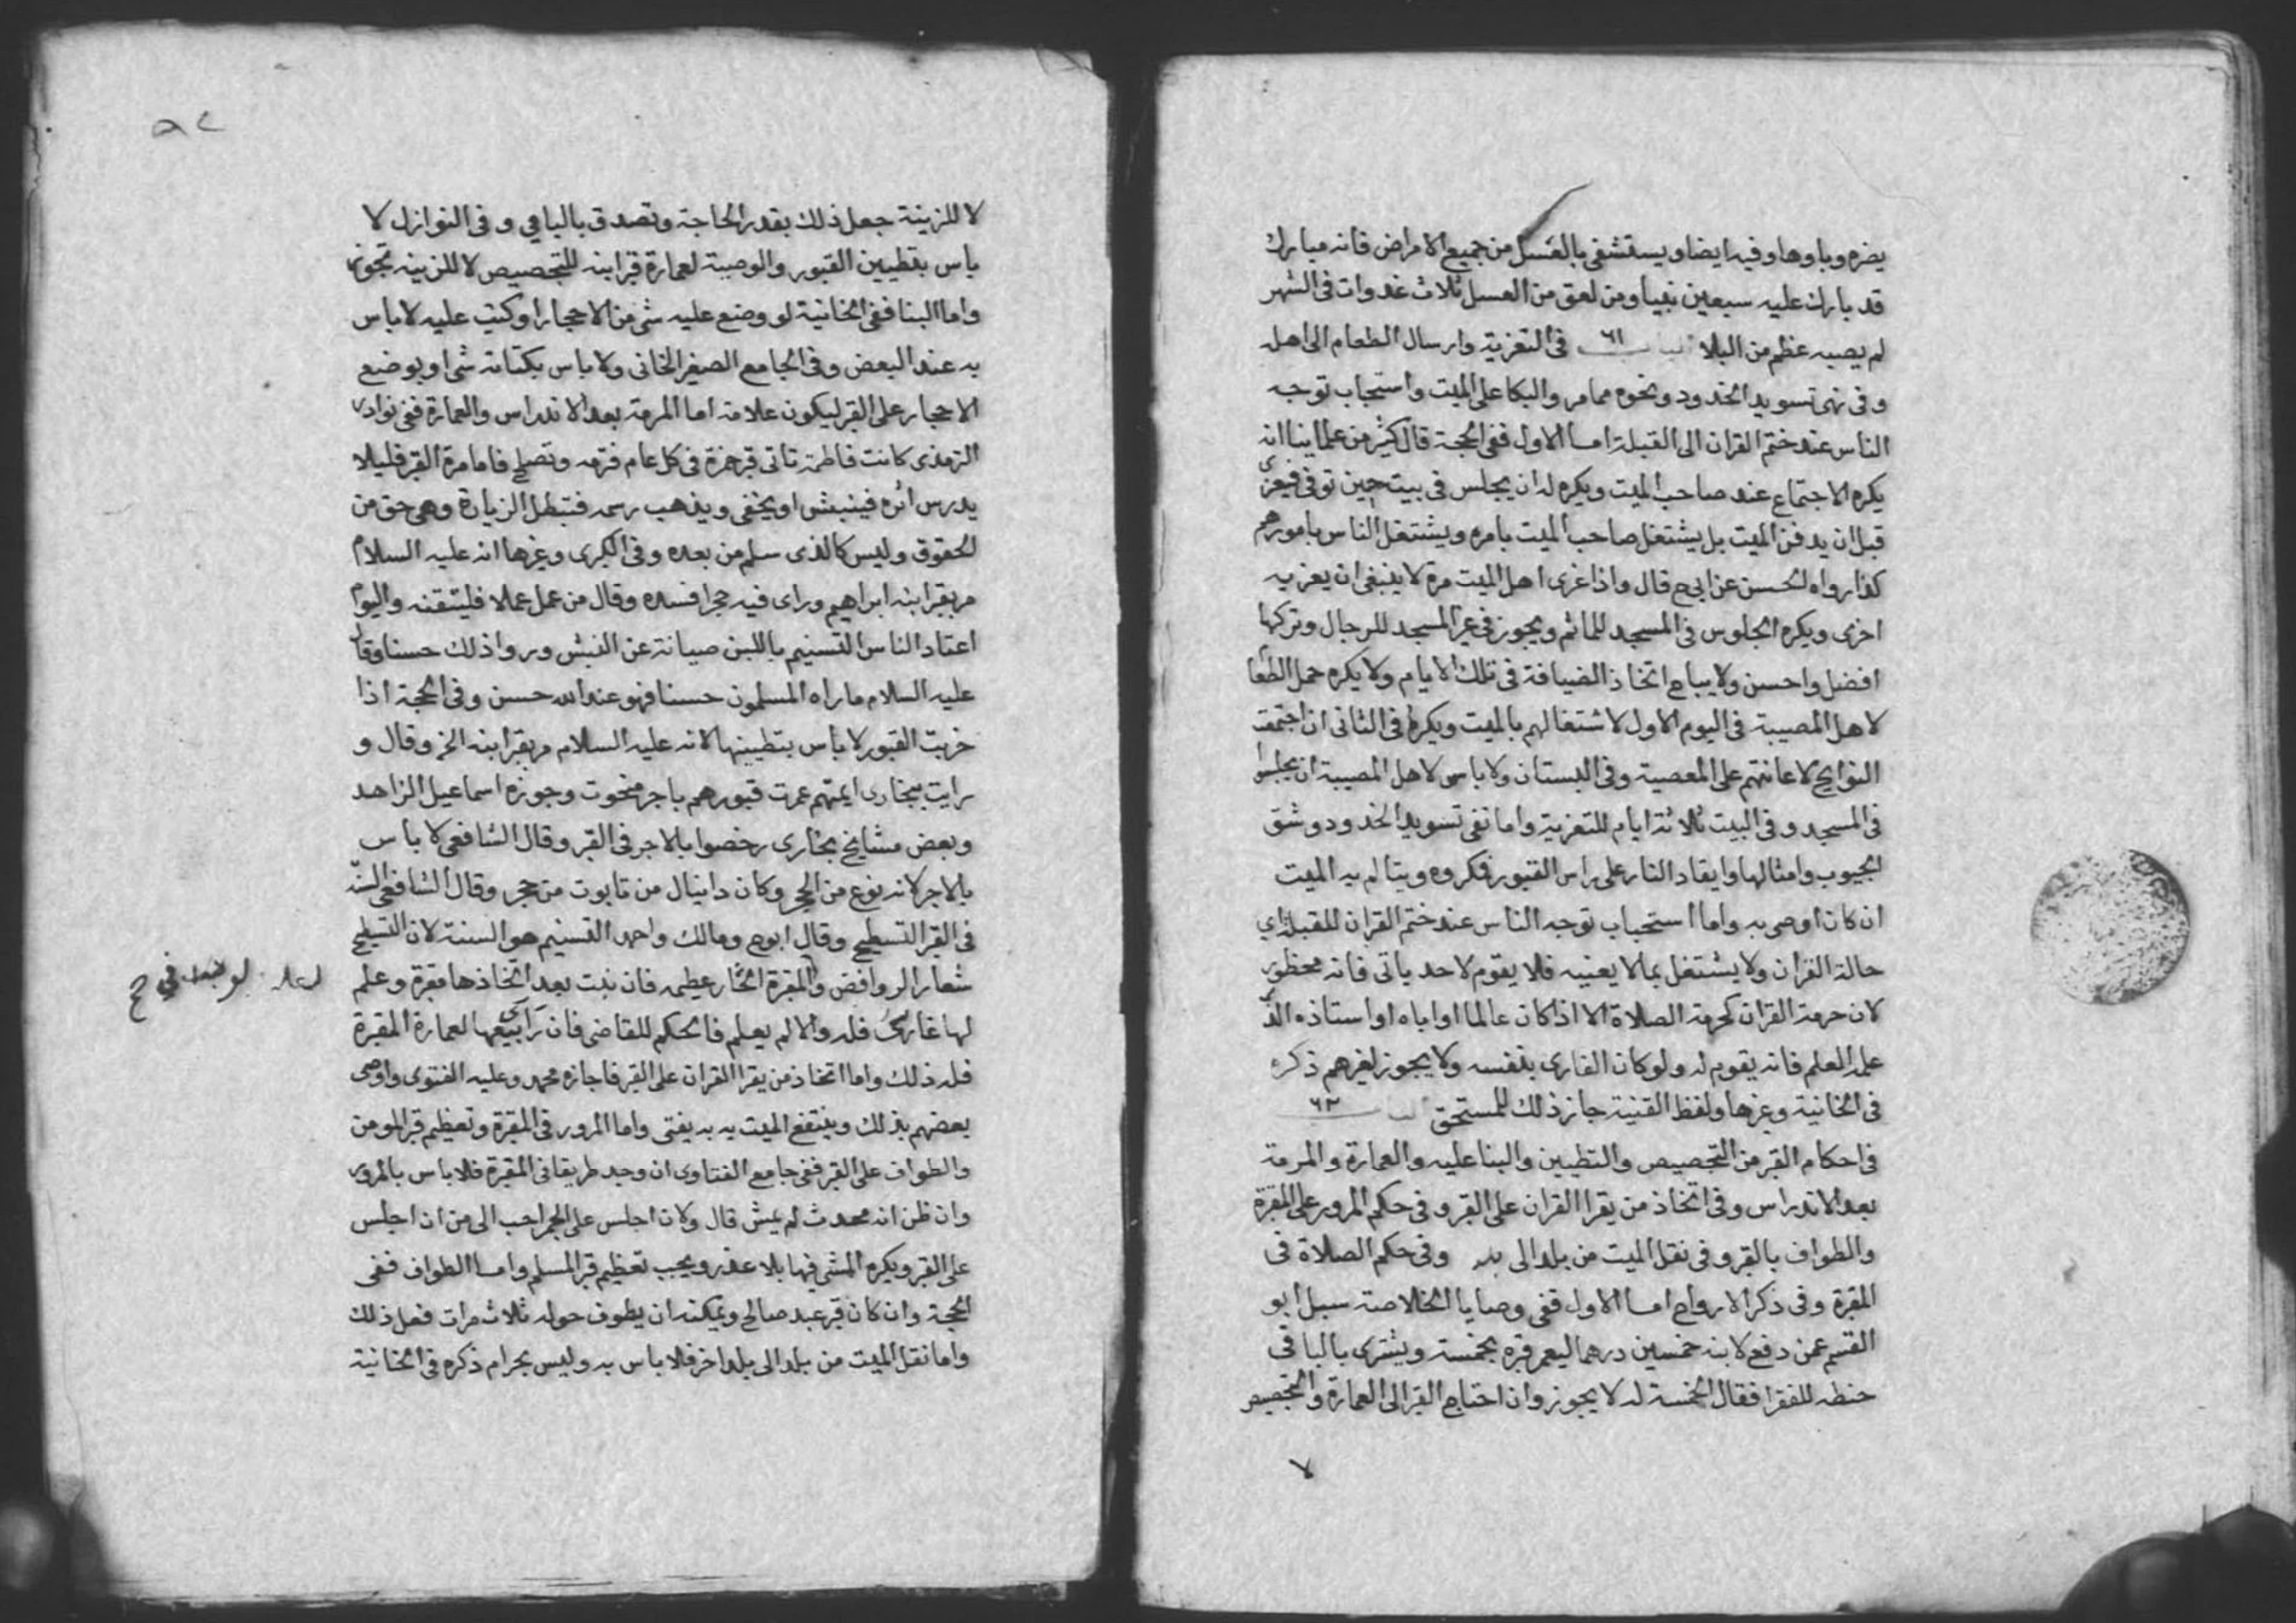 يضره وباوها وفيه ايضا ويستشفى بالغسل من جميع الامراض فانه مبارك
قد بارك عليه سبعين نبيا ومن لعق من العسل ثلاث غدوات فى الشهر
لم يصبه عظم من البلا ٦١ فى التعزية وارسال الطعام الى اهله
وفى نهى تسويد الخدود ونحوه ممامر والبكا على الميت واستحباب توجه
الناس عند ختم القران الى القبلة اما الاول ففى الحجة قال كثير من علماينا انه
يكره الاجتماع عند صاحب الميت ويكره له ان يجلس فى بيت حين توفى فيعزى
قبل ان يدفن الميت بل يشتغل صاحب الميت بامره ويشتغل الناس بامورهم
كذا رواه الحسن عن ابى ح قال واذا عزى اهل الميت مرة لا ينبغى ان يعزيه
اخرى ويكره الجلوس فى المسجد للماتم ويجوز فى غير المسجد للرجال وتركها
افضل واحسن ولا يباح اتخاذ الضيافة فى تلك الايام ولا يكره حمل الطعا
لاهل المصيبة فى اليوم الاول لاشتغالهم بالميت ويكره فى الثانى ان اجتمعت
النوايح لاعانتهم على المعصية وفى البستان ولا باس لاهل المصيبة ان يجلسوا
فى المسجد وفى البيت ثلاثة ايام للتعزية واما نفى تسويد الخدود وشق
الجيوب وامثالها وايقاد النار على راس القبور فكروه ويتالم به الميت
ان كان اوصى به واما استحباب توجه الناس عند ختم القران للقبلة اي
حالة القران ولا يشتغل بما لا يعنيه فلا يقوم لاحد ياتى فانه محظور
لان حرمة القران كحرمة الصلاة الا اذا كان عالما او اباه او استاذه الذى
علمه العلم فانه يقوم له ولو كان القارى بنفسه ولا يجوز لغيرهم ذكره
فى الخانية وغيرها ولفظ القنية جاز ذلك للمستحق ٦٢
فى احكام القبر من التجصيص والتطيين والبنا عليه والعمارة والمرمة
بعد الاندراس وفى اتخاذ من يقرا القران على القبر وفى حكم المرور على المقبرة
والطواف بالقبر وفى نقل الميت من بلد الى بلد وفى حكم الصلاة فى
المقبرة وفى ذكر الارواح اما الاول ففى وصايا الخلاصة سيل ابو
القسم عمن دفع لابنه خمسين درهما ليعمر قبره بخمسة ويشترى بالباقى
حنطه للفقرا فقال الخمسة له لا يجوز وان احتاج القبر الى العمارة والتجصيص
لا
لا للزينة جعل ذلك بقدر الحاجة وتصدق بالباقى وفى النوازل لا
باس بتطيين القبور والوصية لعمارة قبر ابنه للتجصيص لا للزينه تجوز
واما البنا ففى الخانية لو وضع عليه شى من الاحجار او كتب عليه لا باس
به عند البعض وفى الجامع الصغير الخانى ولا باس بكتابة شى او بوضع
الاحجار على القبر ليكون علامة اما المرمة بعد الاندراس والعمارة ففى نوادر
الترمذى كانت فاطمة تاتى قبر حمزة فى كل عام فترمه وتصلح فاما مرة القبر فليلا
يدرس اثره فينبش او يخفى ويذهب رسمه فتبطل الزيارة وهى حق من
الحقوق وليس كالذى سلم من بعده وفى الكبرى وغيرها انه عليه السلام
مر بقبر ابنه ابراهيم وراى فيه حجرا فسده وقال من عمل عملا فليتقنه واليوم
اعتاد الناس التسنيم باللبن صيانة عن النبش وروا ذلك حسنا وقال
عليه السلام ما راه المسلمون حسنا فهو عند الله حسن وفى الحجة اذا
خربت القبور لا باس بتطيينها لانه عليه السلام مر بقبر ابنه الخ وقال و
رايت ببخارى ايمتهم عمرت قبورهم باجر منحوت وجوزه اسماعيل الزاهد
وبعض مشايخ بخارى رخصوا بالاجر فى القبر وقال الشافعى لا باس
بالاجر لانه نوع من الحجر وكان دانيال من تابوت من حجر وقال الشافعى السنة
فى القبر التسطيح وقال ابو ح ومالك واحمد التسنيم هو السنة لان التسطيح
شعار الروافض والمقبرة فان نبت بعد اتخاذها مقبرة وعلم
لها غارس فله والا لم يعلم فالحكم للقاضى فان راى بيعها لعمارة المقبرة
فله ذلك واما اتخاذ من يقرا القران على القبر فاجازه محمد وعليه الفتوى واوصى
بعضهم بذلك وينتفع الميت به به يفتى واما المرور فى المقبرة وتعظيم قبر المومن
والطواف على القبر ففى جامع الفتاوى ان وجد طريقا فى المقبرة فلا باس بالمرور
وان ظن انه محدث لم يمش قال ولان اجلس على الجمر احب الى من ان اجلس
على القبر ويكره المشى فيها بلا عذر ويجب تعظيم قبر المسلم واما الطواف ففى
الحجة وان كان قبر عبد صالح ويمكنه ان يطوف حوله ثلاث مرات فعل ذلك
واما نقل الميت من بلد الى بلد اخر فلا باس به وليس بحرام ذكره فى الخانية